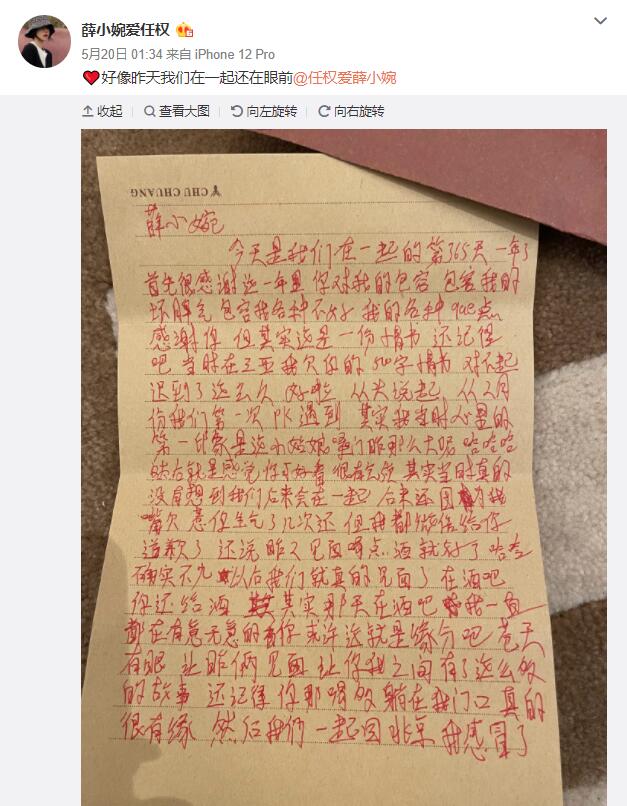 薛小婉爱任权
5月20日 01:34 来自 iPhone 12 Pro
好像昨天我们在一起还在眼前@任权爱薛小婉
收起 查看大图 向左旋转 向右旋转
CHU CHUANG
薛小婉
今天是我们在一起的第365天 一年了
首先很感谢这一年里 你对我的包容 包容我的
坏脾气 包容我各种不好 我的各种que点
感谢你 但其实这是一份情书 还记得
吧 当时在三亚我欠你的500字情书 对不起
迟到了这么久 好啦 从头说起 从2月
份我们第一次PK遇到 其实我当时心里的
第一印象是这小姑娘嗓门咋那么大呢 哈哈哈
然后就是感觉你 好看 很有 其实当时真的
没有想到我们后来会在一起 后来还因为我
嘴欠 惹你生气了几次 但我都 给你
道歉了 还说咱见面喝点酒就好了 哈哈
确实不久 以后我们就真的见面了 在酒吧
你还给酒 其实那天在酒吧 我一直
都在有意无意的 你 或许这就是缘分吧 苍天
有眼 让咱俩见面 让你我之间有了这么多
的故事 还记得你那喝多躺在我门口 真的
很有缘 然后我们一起回北京 我感冒了